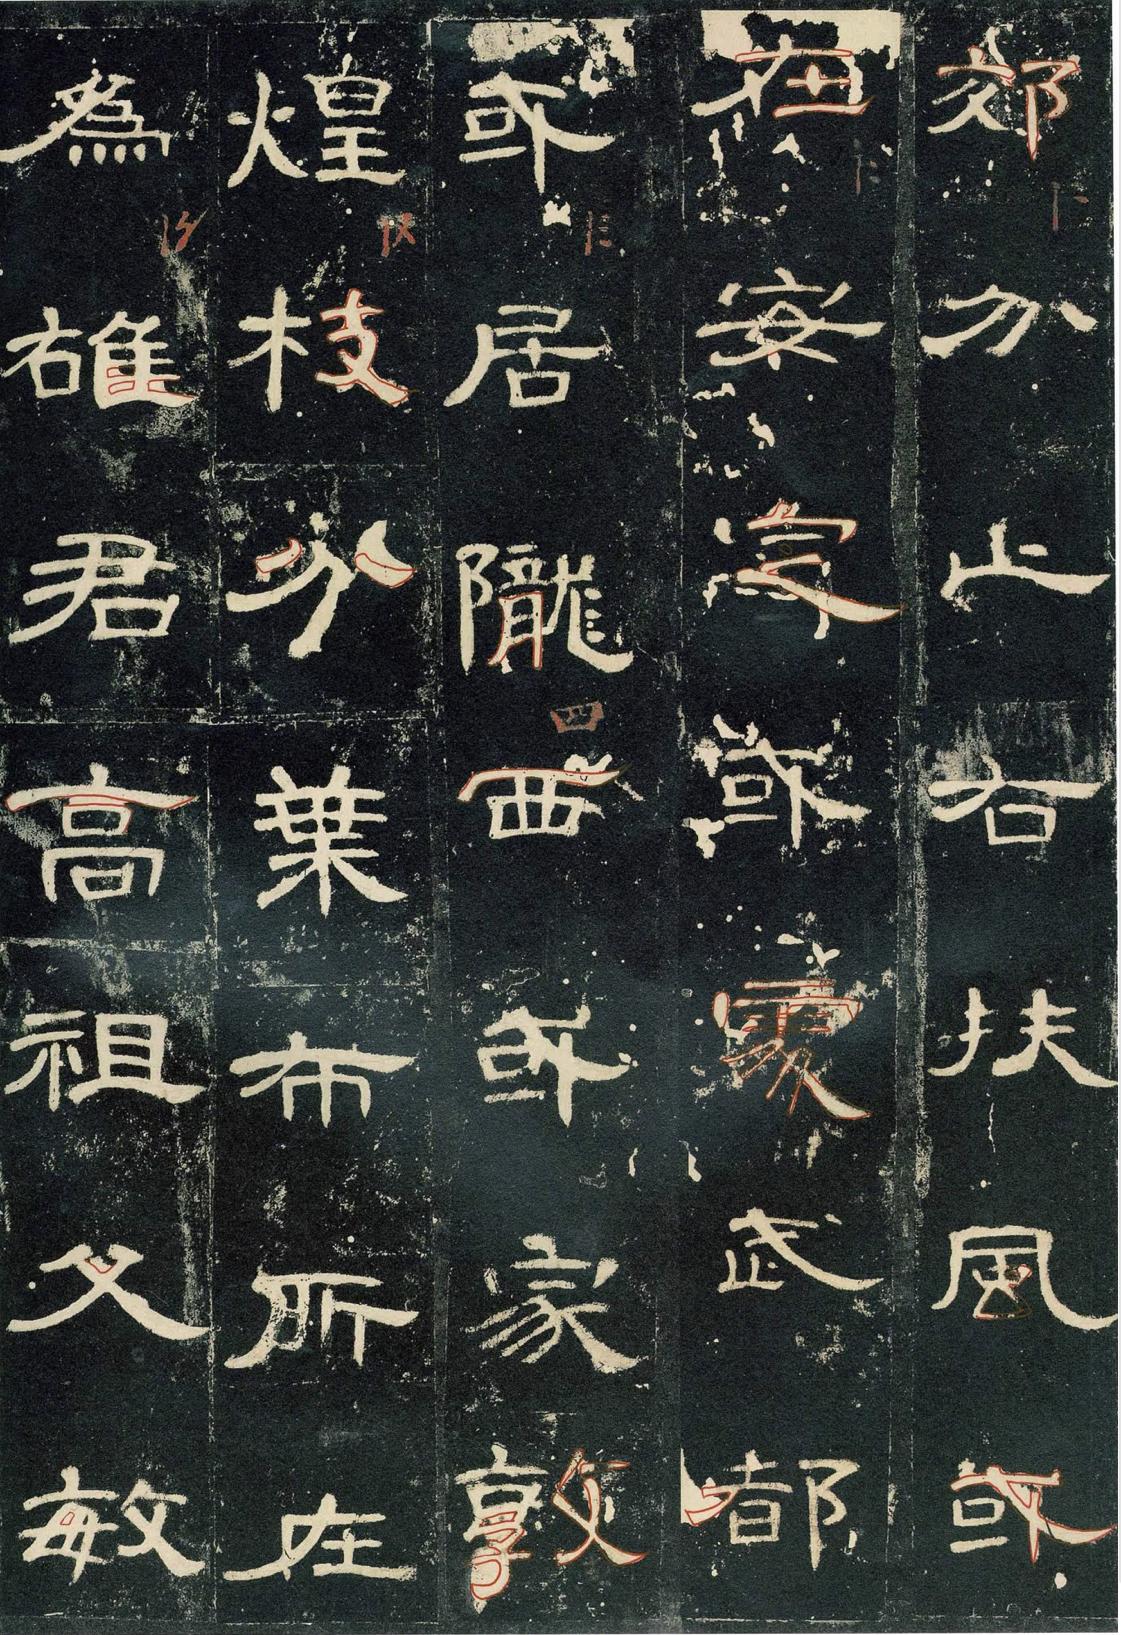 郊分止右扶風或
在安定或處武都
或居隴西或家敦
煌枝分葉布所在
為雄君高祖父敏